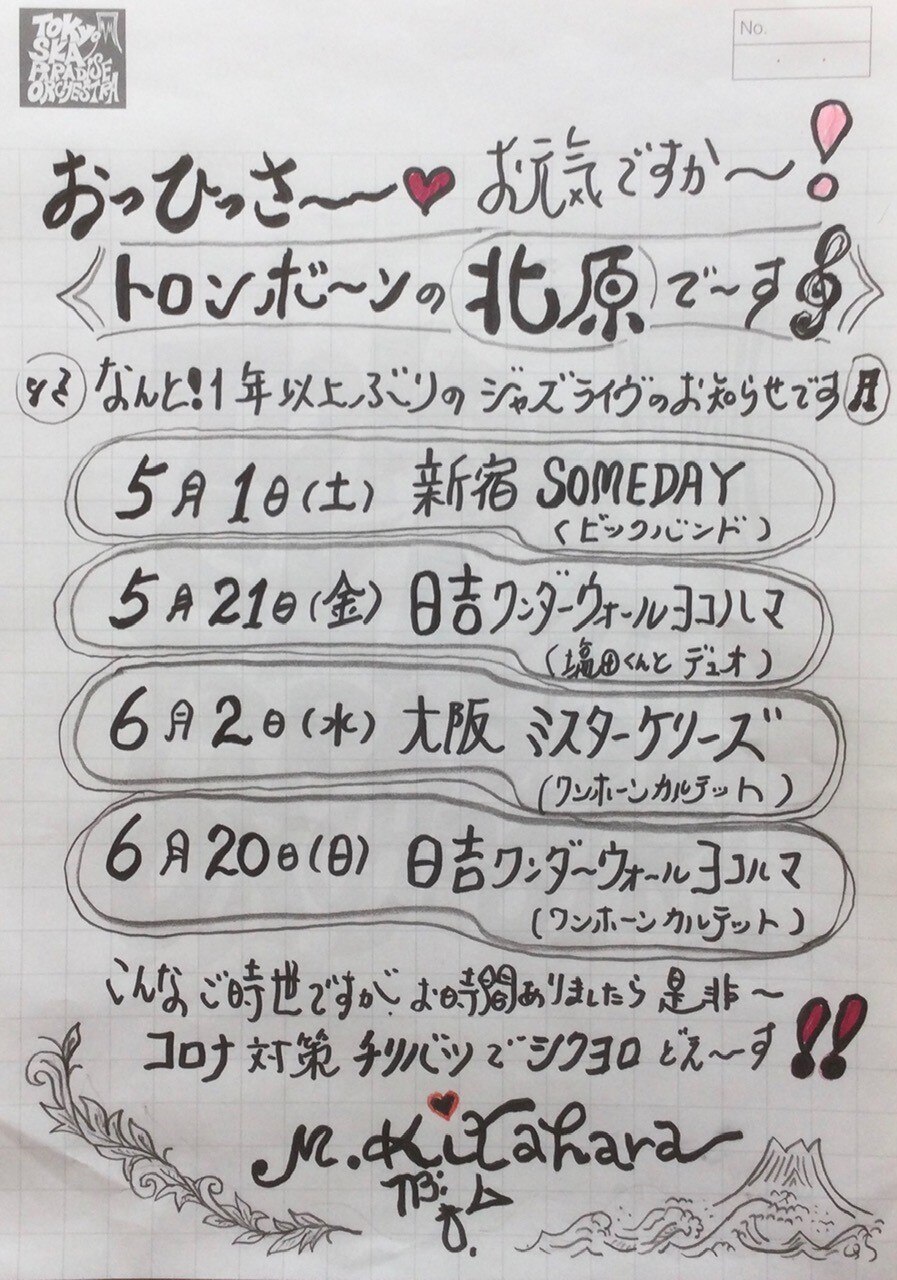 TOKYO
SKA
PARADISE
ORCHESTRA
No.
おっひっさ〜〜♥ お元気ですか〜!
《トロンボ〜ンの北原で〜す》
なんと!1年以上ぶりのジャズライヴのお知らせです
5月1日(土) 新宿 SOMEDAY
(ビックバンド)
5月21日(金) 日吉ワンダーウォールヨコハマ
(塩田くんと デュオ)
6月2日(水) 大阪 ミスターケリーズ
(ワンホーンカルテット)
6月20日(日) 日吉ワンダーウォールヨコハマ
(ワンホーンカルテット)
こんなご時世ですが、お時間ありましたら是非〜
コロナ対策チリバツでシクヨロどえ〜す!!
M.Kitahara
TB: